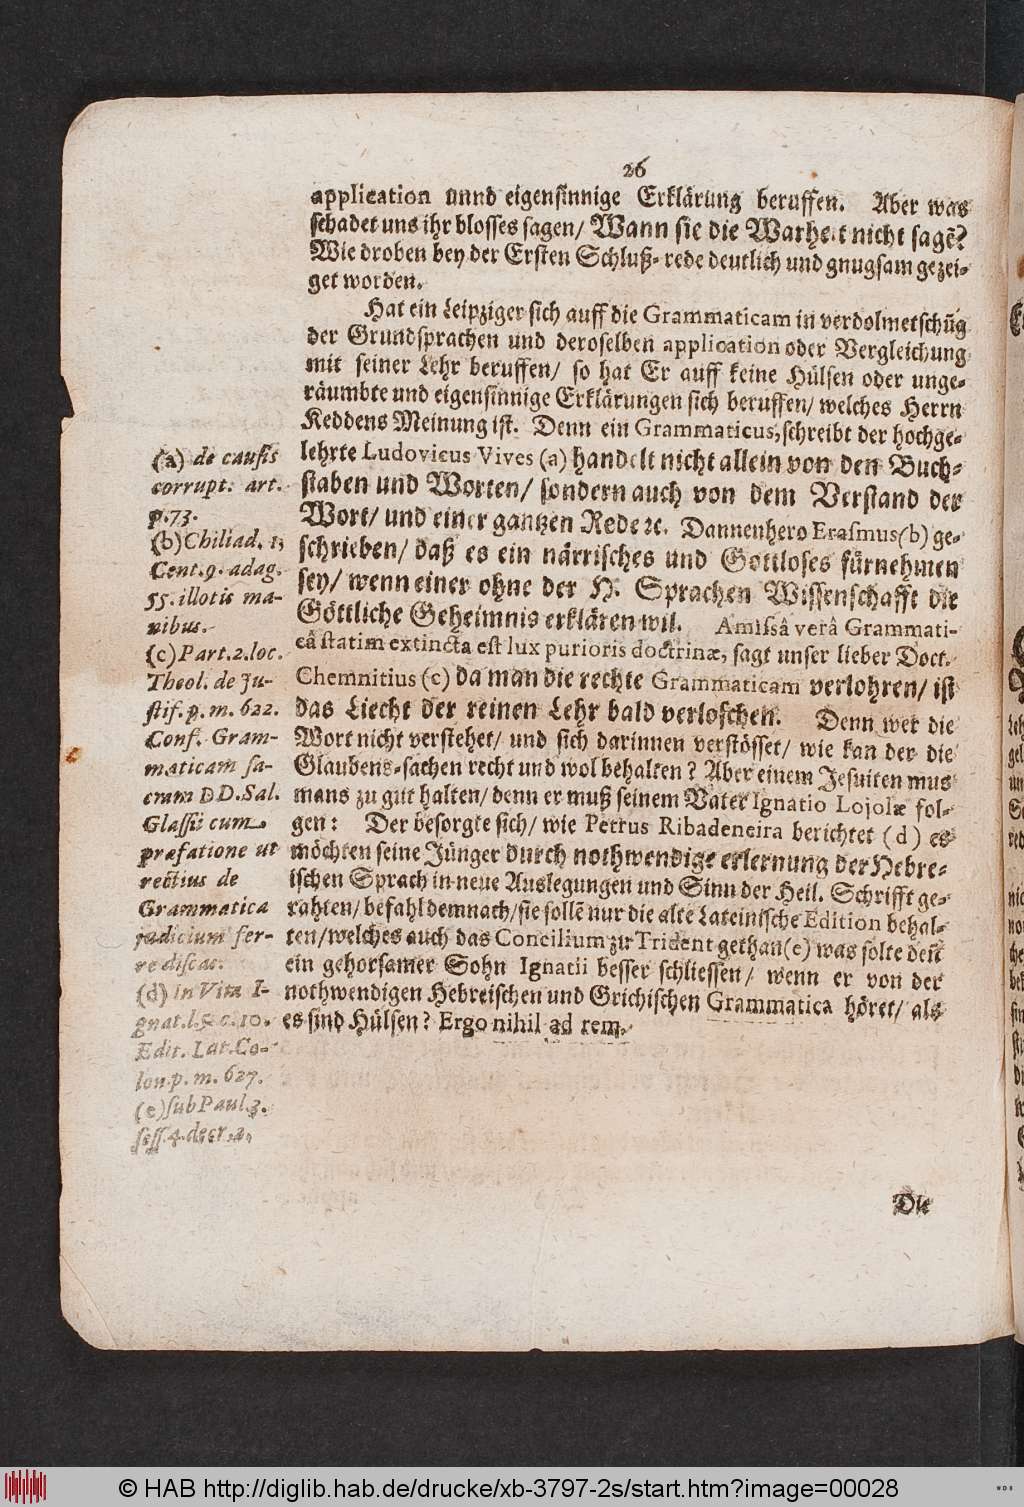 26
application unnd eigensinnige Erklärung beruffen. Aber was
schadet uns ihr blosses sagen/ Wann sie die Warheit nicht sagẽ?
Wie droben bey der Ersten Schluß-rede deutlich und gnugsam gezei-
get worden.
Hat ein Leipziger sich auff die Grammaticam in verdolmetschũg
der Grundsprachen und deroselben application oder Vergleichung
mit seiner Lehr beruffen/ so hat Er auff keine Hülsen oder unge-
räumbte und eigensinnige Erklärungen sich beruffen/ welches Herrn
Keddens Meinung ist. Denn ein Grammaticus, schreibt der hochge-
lehrte Ludovicus Vives (a) handelt nicht allein von den Buch-
staben und Worten/ sondern auch von dem Verstand der
Wort/ und einer gantzen Rede ꝛc. Dannenhero Erasmus (b) ge-
schrieben/ daß es ein närrisches und Gottloses fürnehmen
sey/ wenn einer ohne der H. Sprachen Wissenschafft die
Göttliche Geheimnis erklären wil. Amissâ verâ Grammati-
câ statim extincta est lux purioris doctrinæ, sagt unser lieber Doct.
Chemnitius (c) da man die rechte Grammaticam verlohren/ ist
das Liecht der reinen Lehr bald verloschen. Denn wer die
Wort nicht verstehet/ und sich darinnen verstösset/ wie kan der die
Glaubens-sachen recht und wol behalten? Aber einem Jesuiten mus
mans zu gut halten/ denn er muß seinem Vater Ignatio Lojolæ fol-
gen: Der besorgte sich/ wie Petrus Ribadeneira berichtet (d) es
möchten seine Jünger durch nothwendige erlernung der Hebre-
ischen Sprach in neue Auslegungen und Sinn der Heil. Schrifft ge-
rahten/ befahl demnach/ sie sollẽ nur die alte Lateinische Edition behal-
ten/ welches auch das Concilium zu Trident gethan (e) was solte deñ
ein gehorsamer Sohn Ignatii besser schliessen/ wenn er von der
nothwendigen Hebreischen und Grichischen Grammatica höret/ als
es sind Hülsen? Ergo nihil ad rem.
(a) de causis
corrupt. art.
p. 73.
(b) Chiliad. 1.
Cent. 9. adag.
55. illotis ma-
nibus.
(c) Part. 2. loc.
Theol. de Ju-
stif. p. m. 622.
Conf. Gram-
maticam sa-
cram DD. Sal.
Glassii cum
præfatione ut
rectius de
Grammatica
judicium fer-
re discat.
(d) in Vita I-
gnat. l. 5. c. 10.
Edit. Lat. Co-
lon. p. m. 627.
(e) sub Paul. 3.
sess. 4. decr. 2.
Die
© HAB http://diglib.hab.de/drucke/xb-3797-2s/start.htm?image=00028